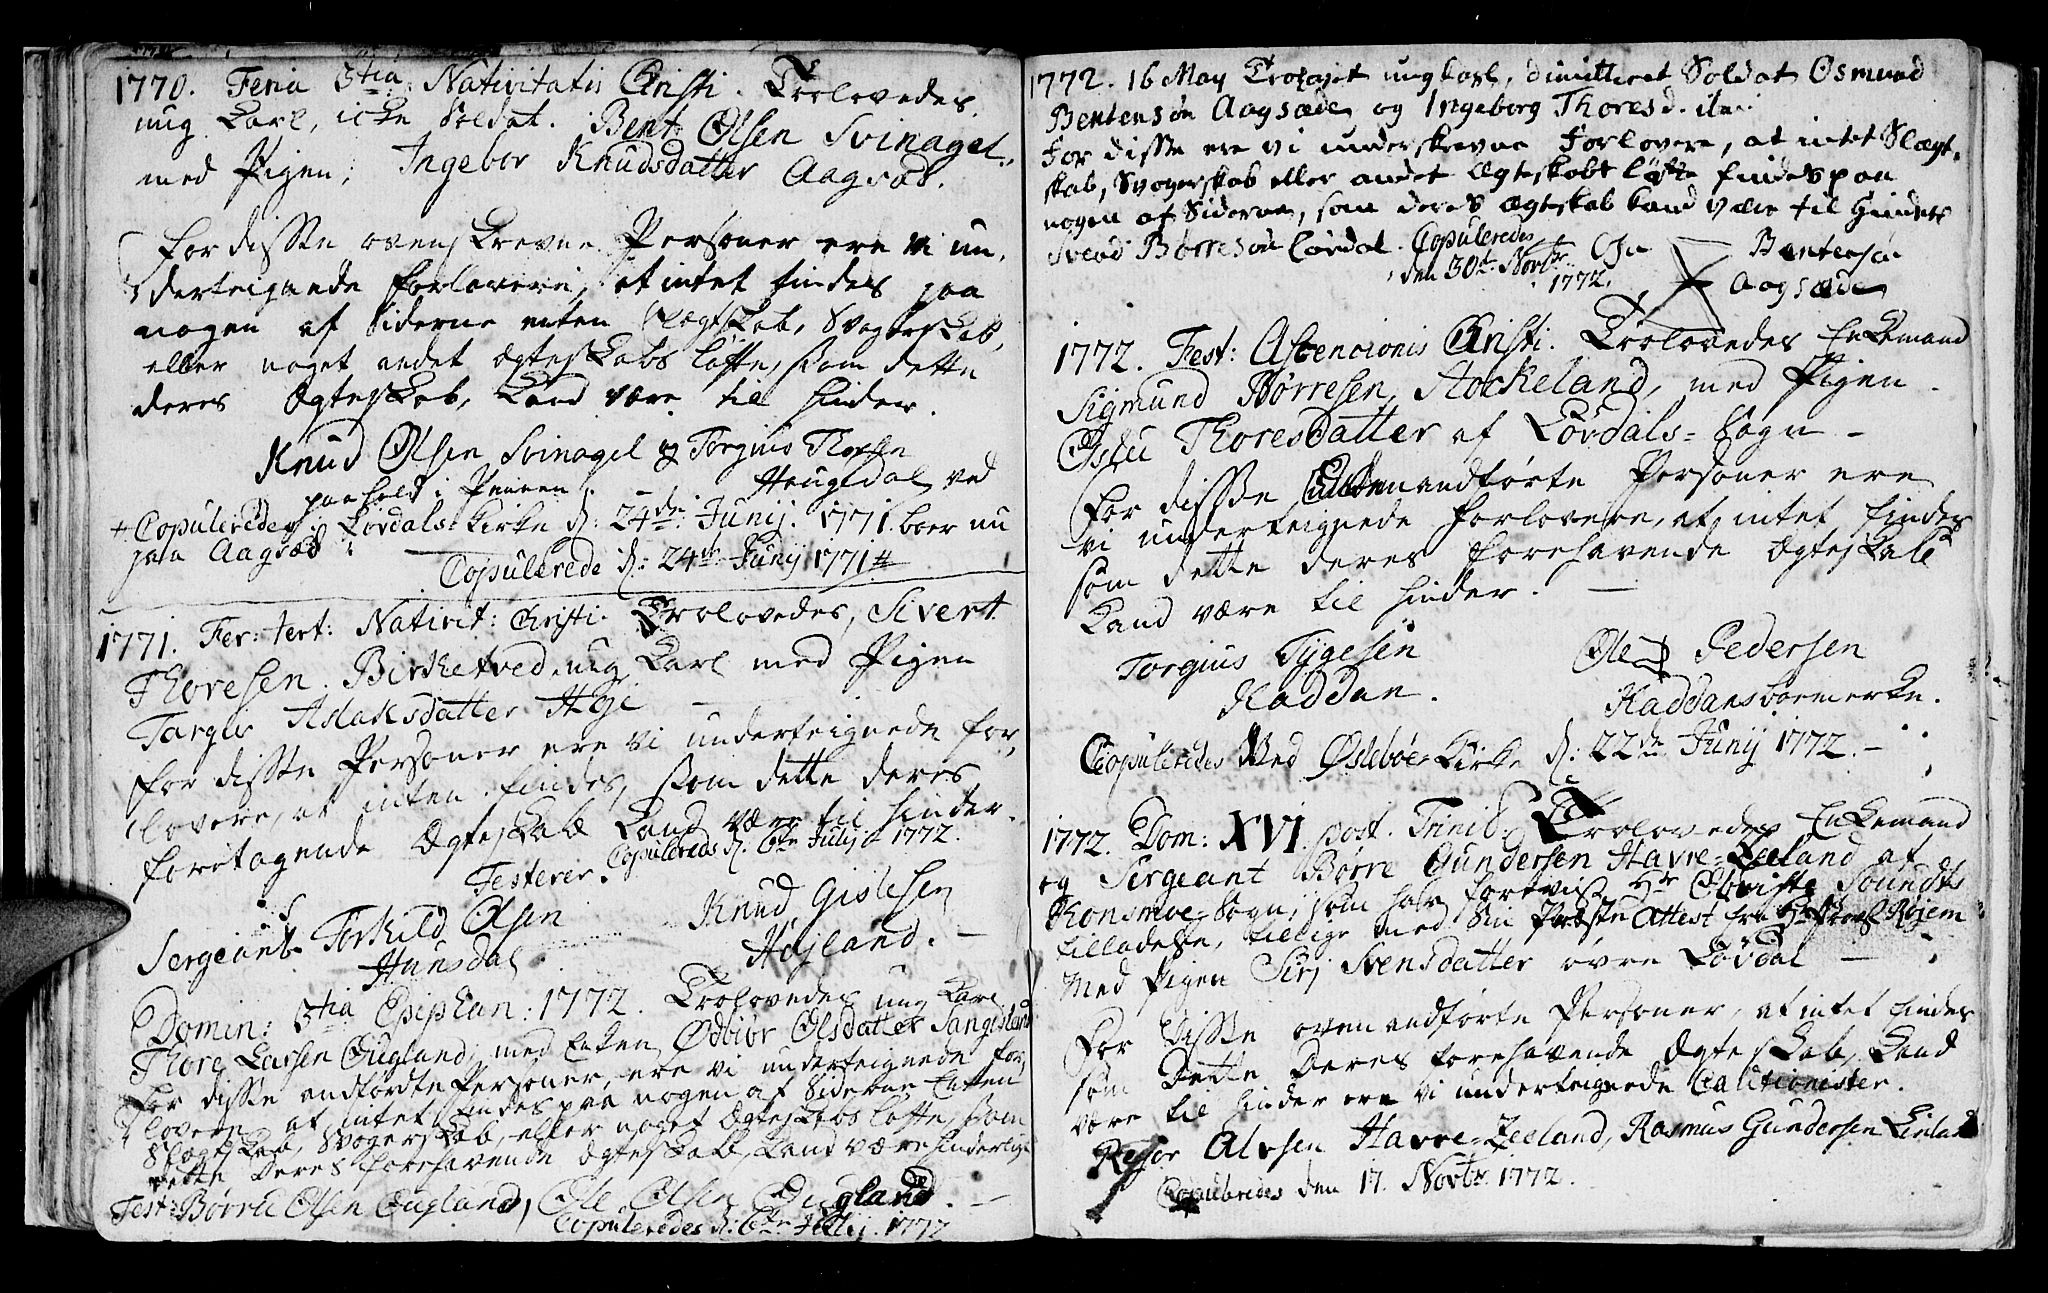 1770. Feria 3tia Nativitatis Christi. Trolovedes
ung Karl, icke Soldat. Bent Olsen Svinagel,
med Pigen, Ingebor Knudsdatter Aagsæd.
for disse ovenskrevne Personer ere vi un-
derteignede forlovere, at intet findes paa
nogen af Siderne enten Slægtskab, Svogerskab,
eller noget andet Ægteskabs løfte, som dette
deres Ægteskab, Kand være til hinder.
Knud Olsen Svinagel & Torgius
Haugsdal ved
paaholden Pennen.
+ Copuleredes i Løvdals Kirke d: 24de Junij. 1771. boer nu
paa Aagsæd
Copulerede d: 24de Junij 1771 #
1771. Fer: tert: Nativit: Christi. Trolovedes, Sivert
Thoresen Birketved, ung Karl med Pigen
Targier Aslaksdatter
for disse Personer ere vi underteignede for-
lovere, at inten findes, som dette deres
foretagende Ægteskab Kand være til hinder.
Copulereds d. 6te Julij 1772.
Testerer.
Sergeant Torkild Olsen Knud Gislesen
Hunsdal Højland.
Domin: 3tia Epiphan: 1772. Trolovedes ung Karl
Thore Lassen Øugland, med Enken Ødbiør Olsdatter Sangesland
for disse andførdte Personer, ere vi underteignede for-
lovere at intet findes paa nogen af Siderne Enten
Slægtskab, Svogerskab, eller noget Ægteskabs løfte, som
dette deres forehavende Ægteskab Kand være hinderlig
Test: Børre Olsen Øugland, Ole Olsen Øugland.
Copuleredes d: 6te Julij. 1772
1772. 16 May Trolovet ungkarl, dimitteret Soldat Osmund
Bentensøn Aagsæde og Ingeborg Thoresd. item
for disse ere vi underskrevne Forlovere, at intet Slægt-
skab, Svogerskab eller andet Ægteskabs løfte findes paa
nogen af Siderne, som deres Ægteskab kand være til Hinder
Svend Børresøn Løvdal. Copuleredes Ole Bentensøn
den 30te Novbr. 1772. Aagsæde
1772. Fest: Ascencionis Christi. Trolovedes Enkemand
Sigmund Børresen Stockeland, med Pigen
Øslu Thoresdatter af Løvdals-Sogn
for disse andførte Personer ere
vi underteignede forlovere, at intet findes
som dette deres forehavende Ægteskab
Kand være til hinder.
Torgius Tygesen Ole Pedersen
Haddan. Haddansboemercke.
Copuleredes Ved Øslebøe Kirke d: 22de Junij 1772.
1772. Dom: XVI. post. Trinit: Trolovedes Enkemand
og Sergeant Børre Gundersen Havre-Zeeland af
Konsmoe-Sogn, som har forevist Hr Obriste Soundts
tilladelse, tillige med sin Præstes Attest fra Hr Røjem
Med Pigen Sirj Svensdatter øvre Løvdal
For disse oven andførte Personer, at intet findes
som Dette Deres forehavende Ægteskab Kand
være til hinder ere vi underteignede Cautionister.
Alvsen Havre-Zeeland, Rasmus Gundersen Linland
Copuleredes den 17. Novbr. 1772.